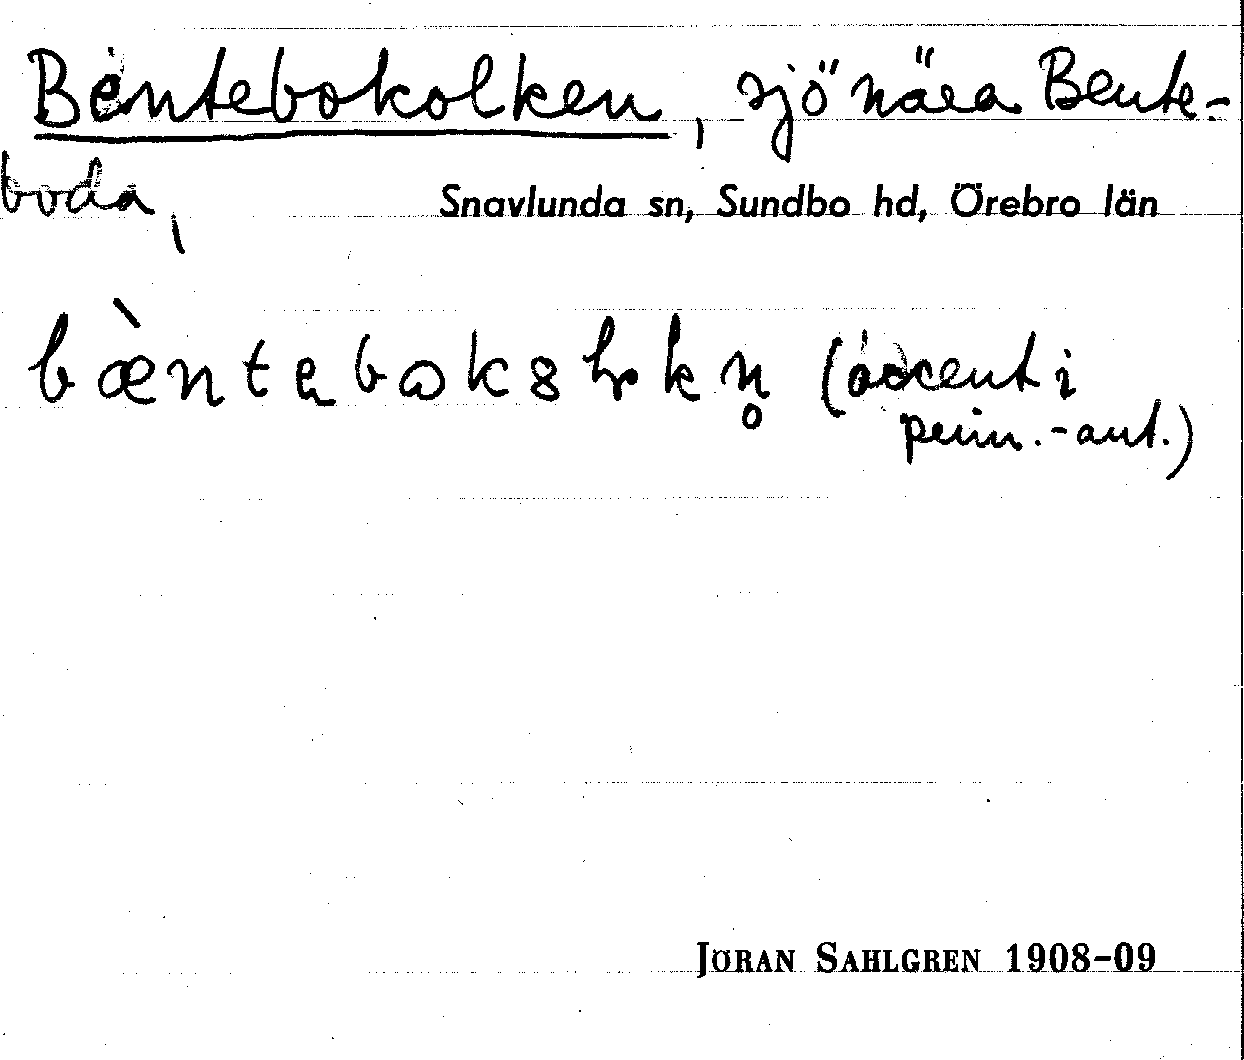 Bèntebokolken, sjö nära Bente-
boda,
Snavlunda sn, Sundbo hd, Örebro län
bæ̀ntebωk8lkn̥ (accent i
penn.-ant.)
JÖRAN SAHLGREN 1908-09